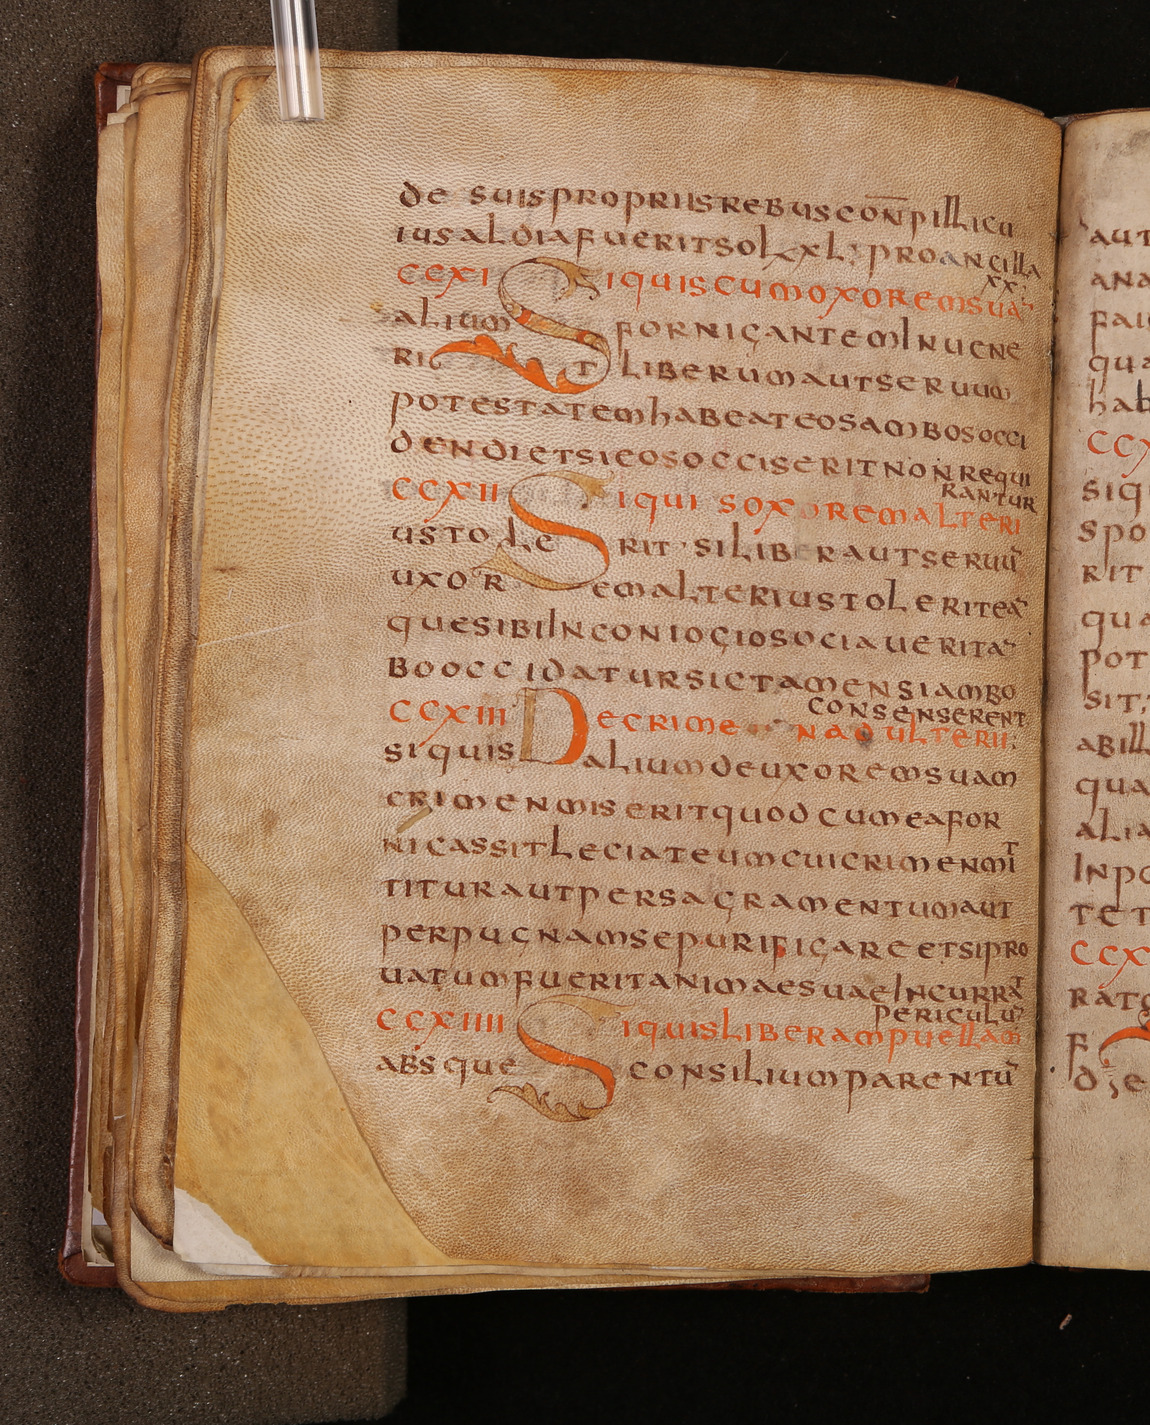 de suispropriisrebusconpillicu
iusaldiafueritsol xl; proancilla
xx;
CCXI Siquiscumoxoremsua
alium fornicantemInuene
rit liberumautseruum
potestatemhabeateosambosocci
dendietsieosocciseritnonrequi
rantur
CCXII Siqui soxoremalteri
ustole rit · siliberautseruu
uxor emalteriustoleritea
quesibiInconiogiosociaueritā
boocciidatursictamensiambo
consenserent
CCXIII Decrime nadulterii;
siquis aliumdeuxoremsuam
crimenmiseritquodcumeafor
nicassitleciateumcuicrimenmit
titurautpersacramentumaut
perpugnamsepurificareetsipro
uatumfueritanimaesuaeIncurrat
periculū
CCXIIII Siquisliberampuellam
absque consiliumparentū
aut
ana
fai
qua
hab
CCX
siqi
spo
rit
qua
pot
sit;
abill
qua
alia
Inpo
tet
CCX
rato
f
d;e